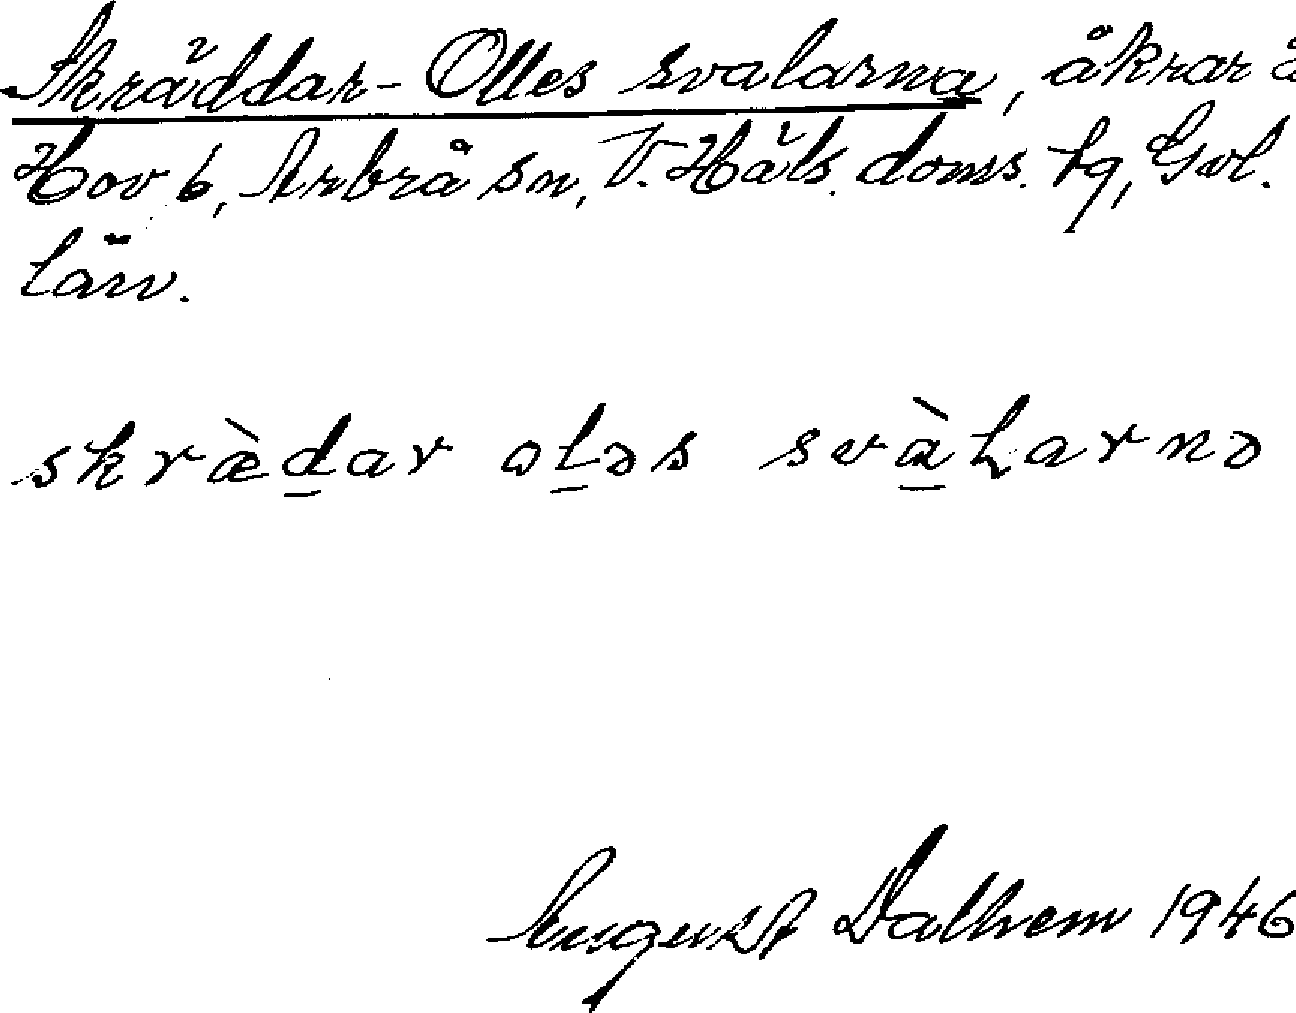 Skräddar-Olles svalarna, åkrar å
Hov 6, Arbrå sn, V. Häls. doms. tg, Gvl.
län.
skræ̀d̲ar ol̲əs svà̲ɭarnə
August Dalhem 1946